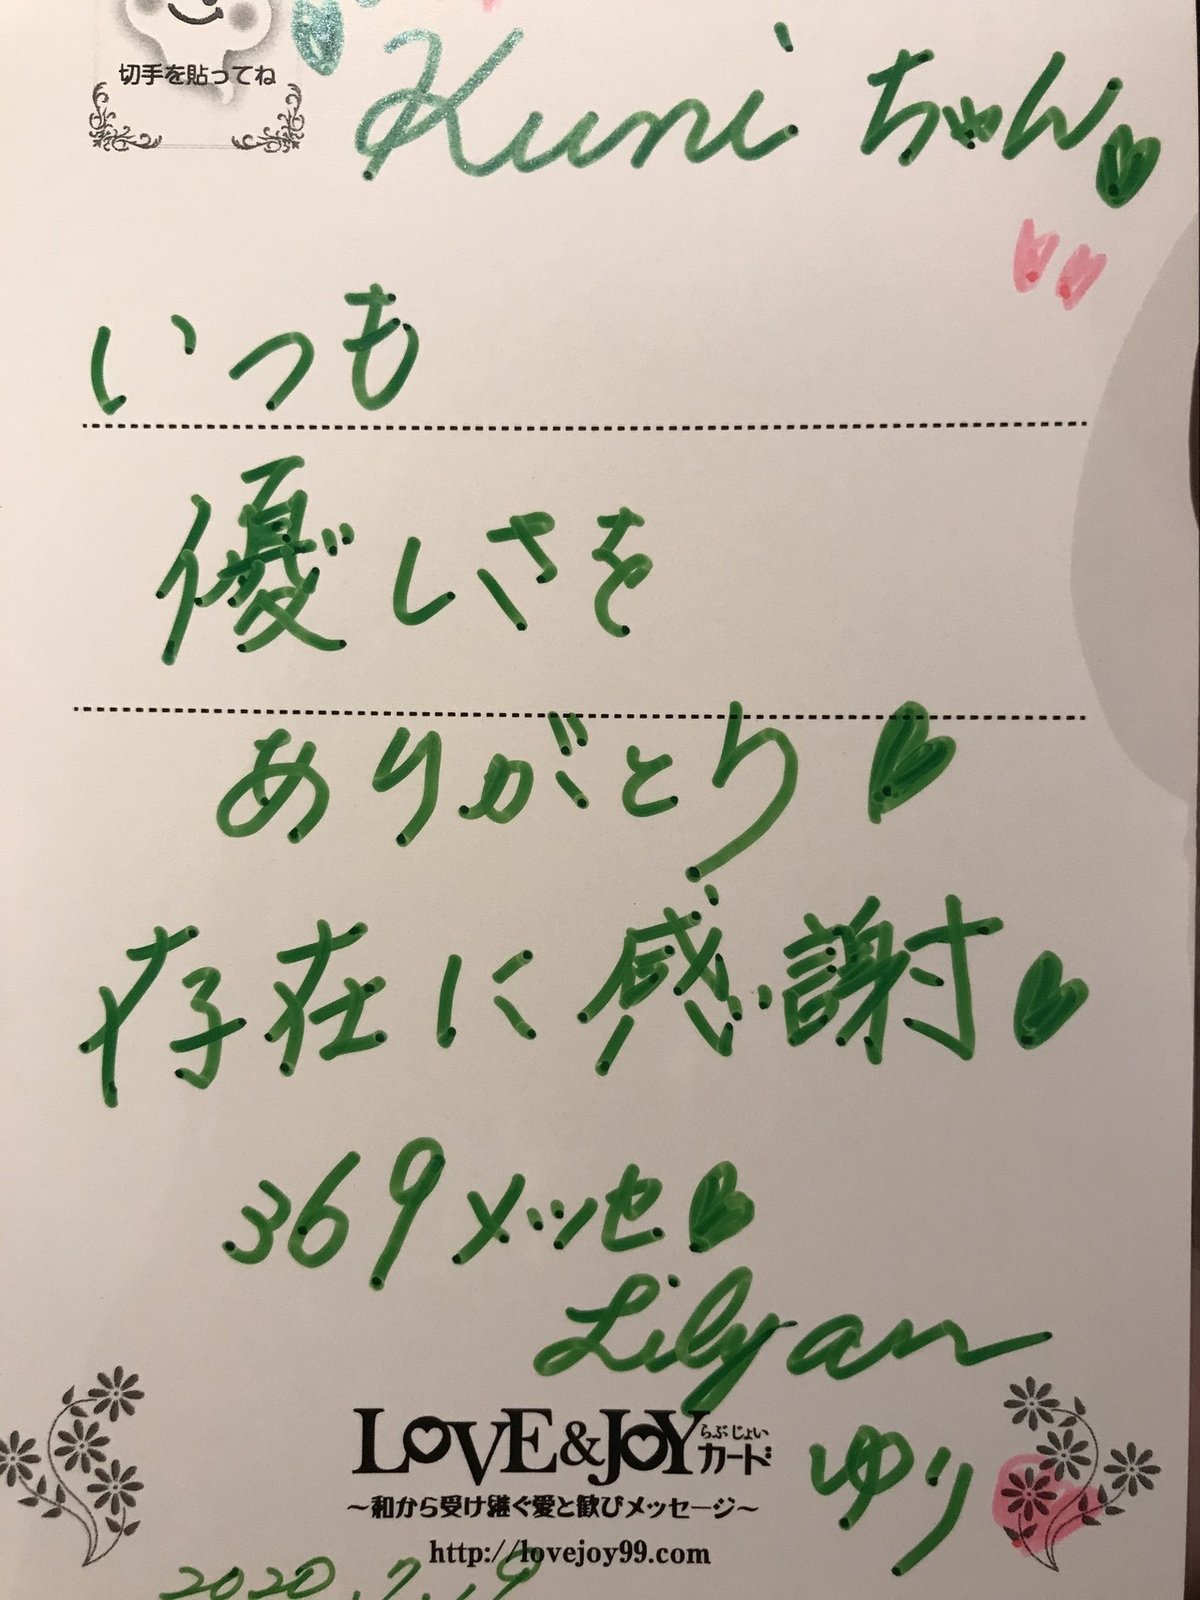 切手を貼ってね
Kuni ちゃん
いつも
優しさを
ありがとう
存在に感謝
369メッセ
Lilyan
ゆり
LOVE&JOYカード
らぶじょい
～和から受け継ぐ愛と歓びメッセージ～
http://lovejoy99.com
2020.7.19